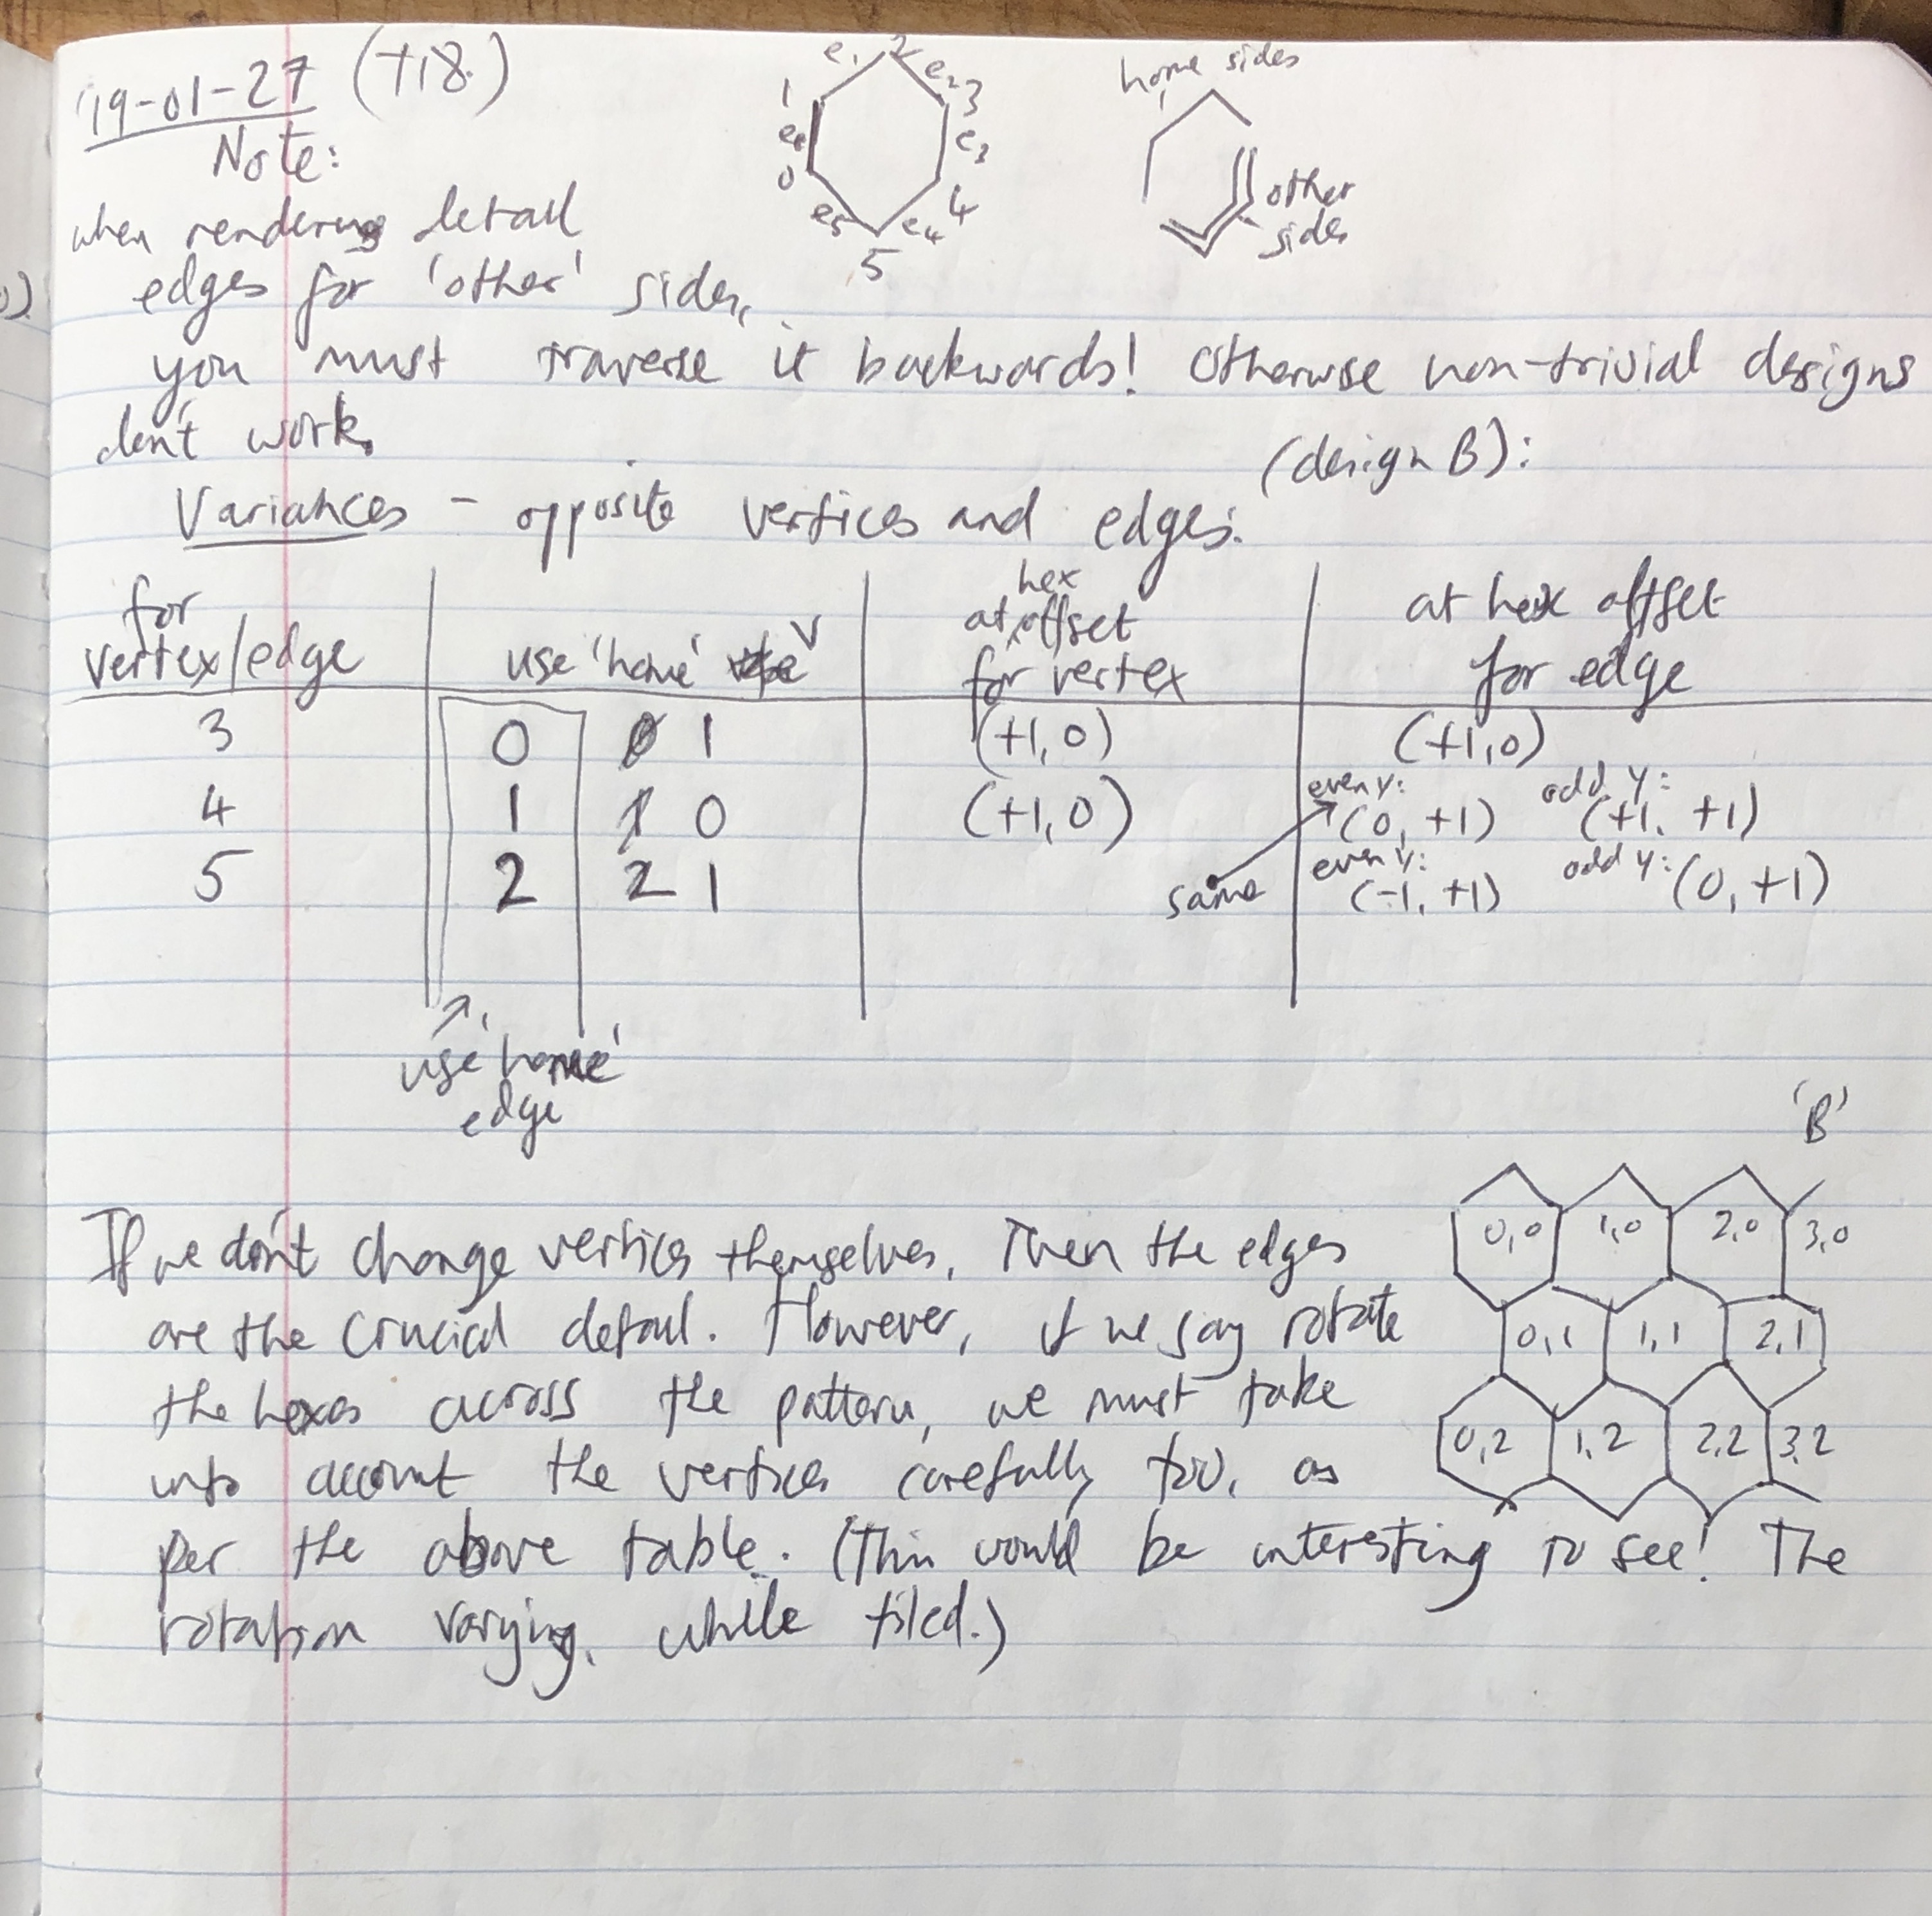 '19-01-27 (T18.)
Note:
when rendering detail
edges for 'other' sides,
you must traverse it backwards! Otherwise non-trivial designs
don't work.
e1 2 e2 3 e3 4 e4 5 e5 0 e0 1
home sides
other
sides
Variances - opposite vertices and edges.
(design B):
for
vertex/edge
use 'home' V
at hex offset
for vertex
at hex offset
for edge
3 0 0 1 (+1,0) (+1,0)
4 1 1 0 (+1,0) even y: (0, +1) odd y: (+1, +1)
5 2 2 1 same even y: (-1, +1) odd y: (0, +1)
use 'home'
edge
'B'
0,0 1,0 2,0 3,0
0,1 1,1 2,1
0,2 1,2 2,2 3,2
If we don't change vertices themselves, Then the edges
are the crucial detail. However, if we say rotate
the hexes across the pattern, we must take
into account the vertices carefully too, as
per the above table. (This would be interesting to see! The
rotation varying, while tiled.)